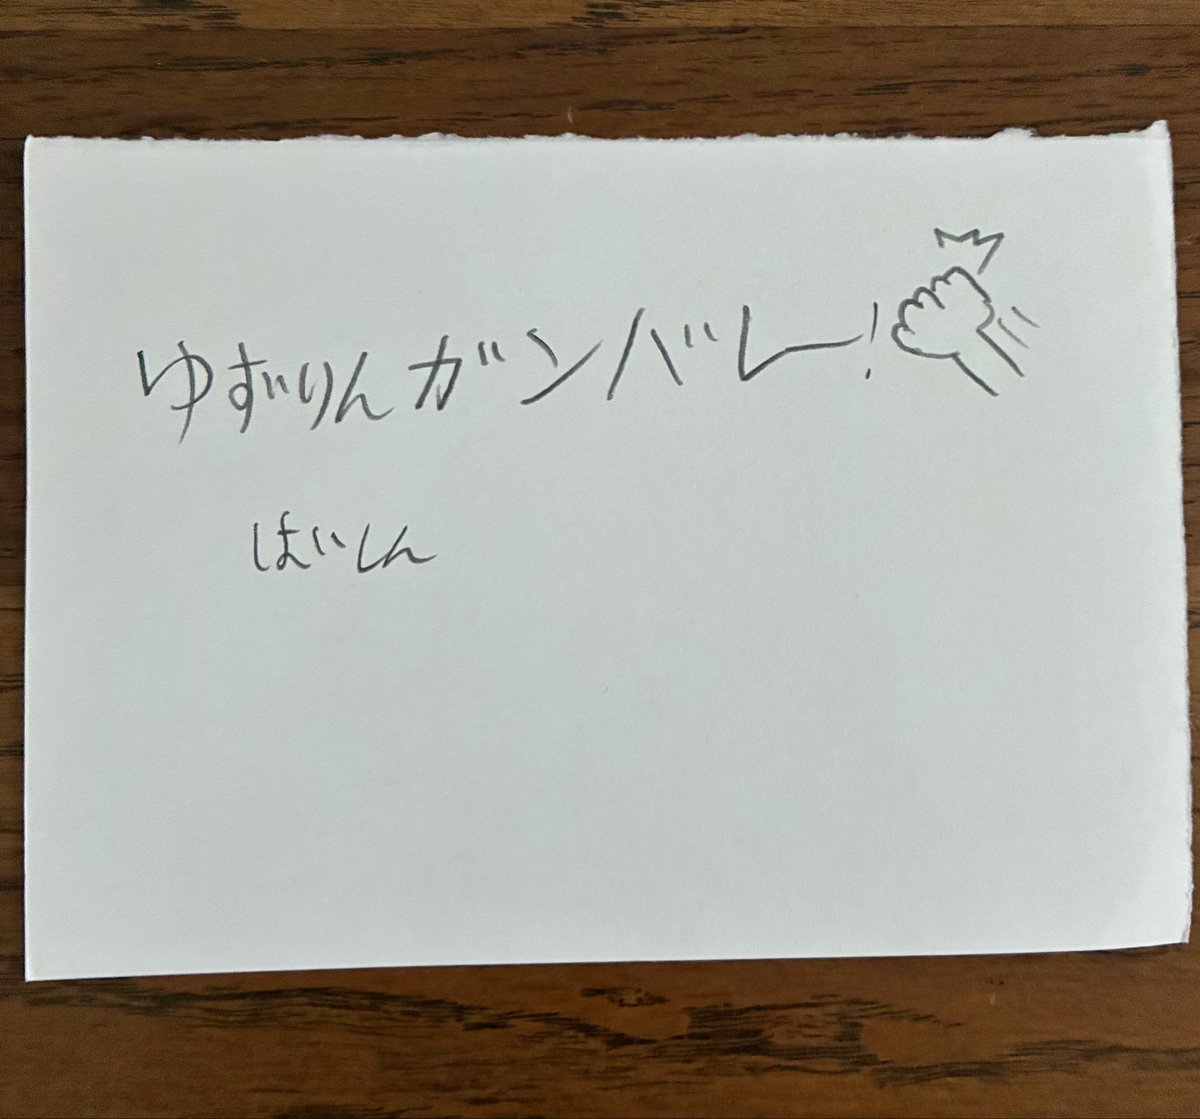 ゆずりんガンバレー!
はいしん